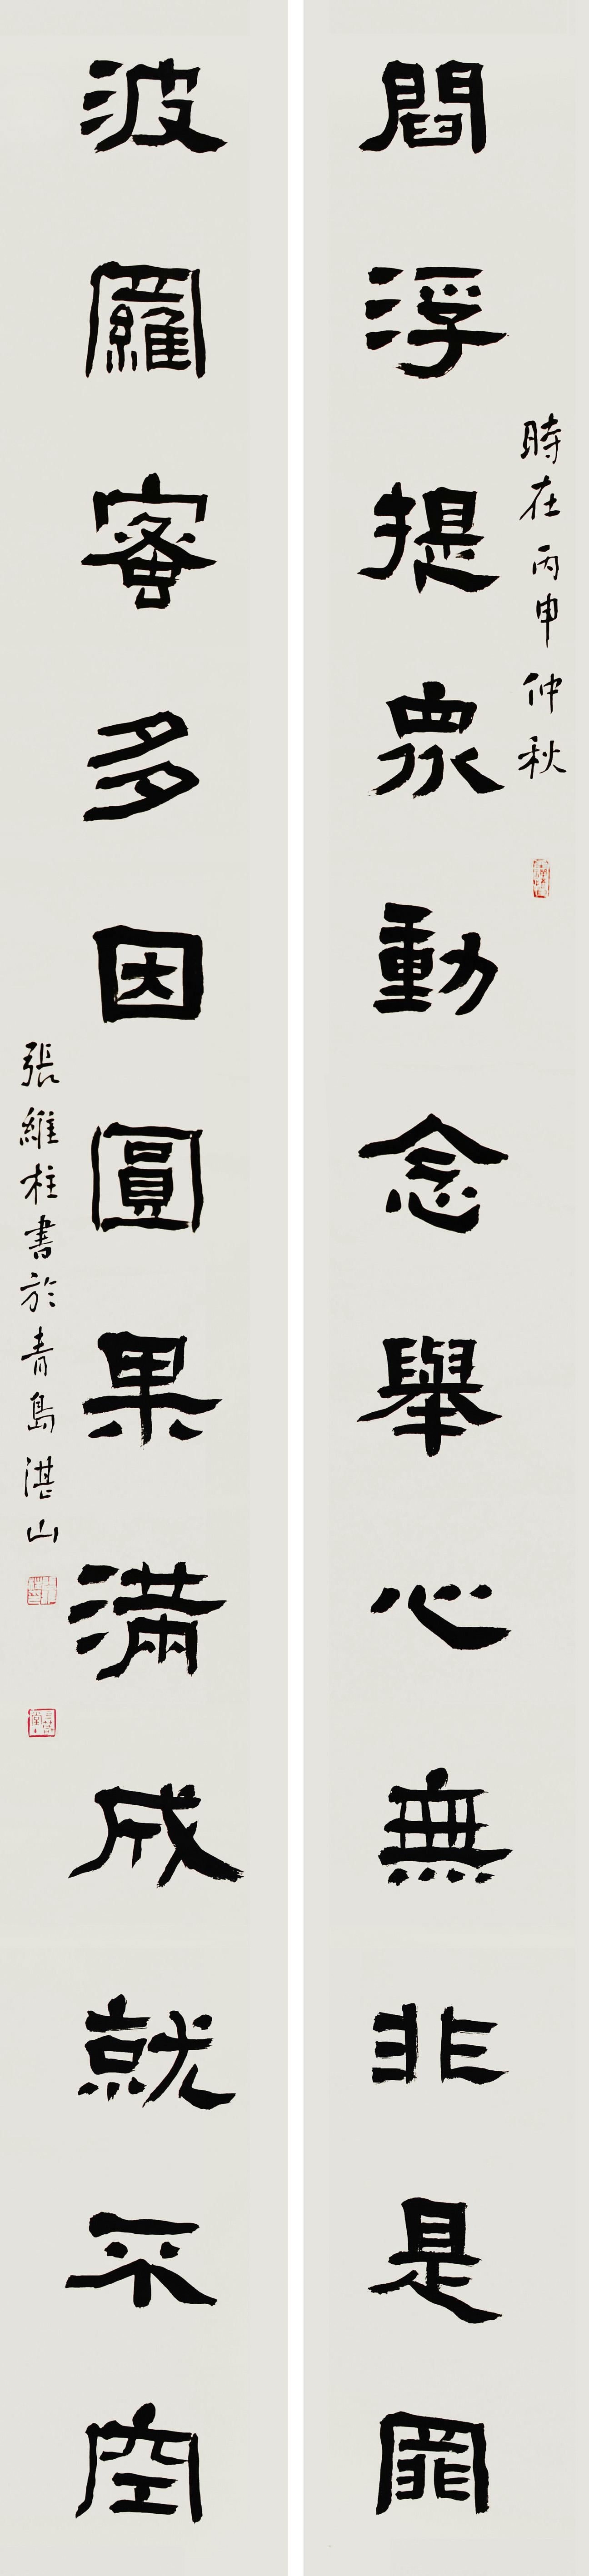 時在丙申仲秋
閻浮提衆動念舉心無非是罪
波羅蜜多因圓果滿成就不空
張維柱書於青島湛山